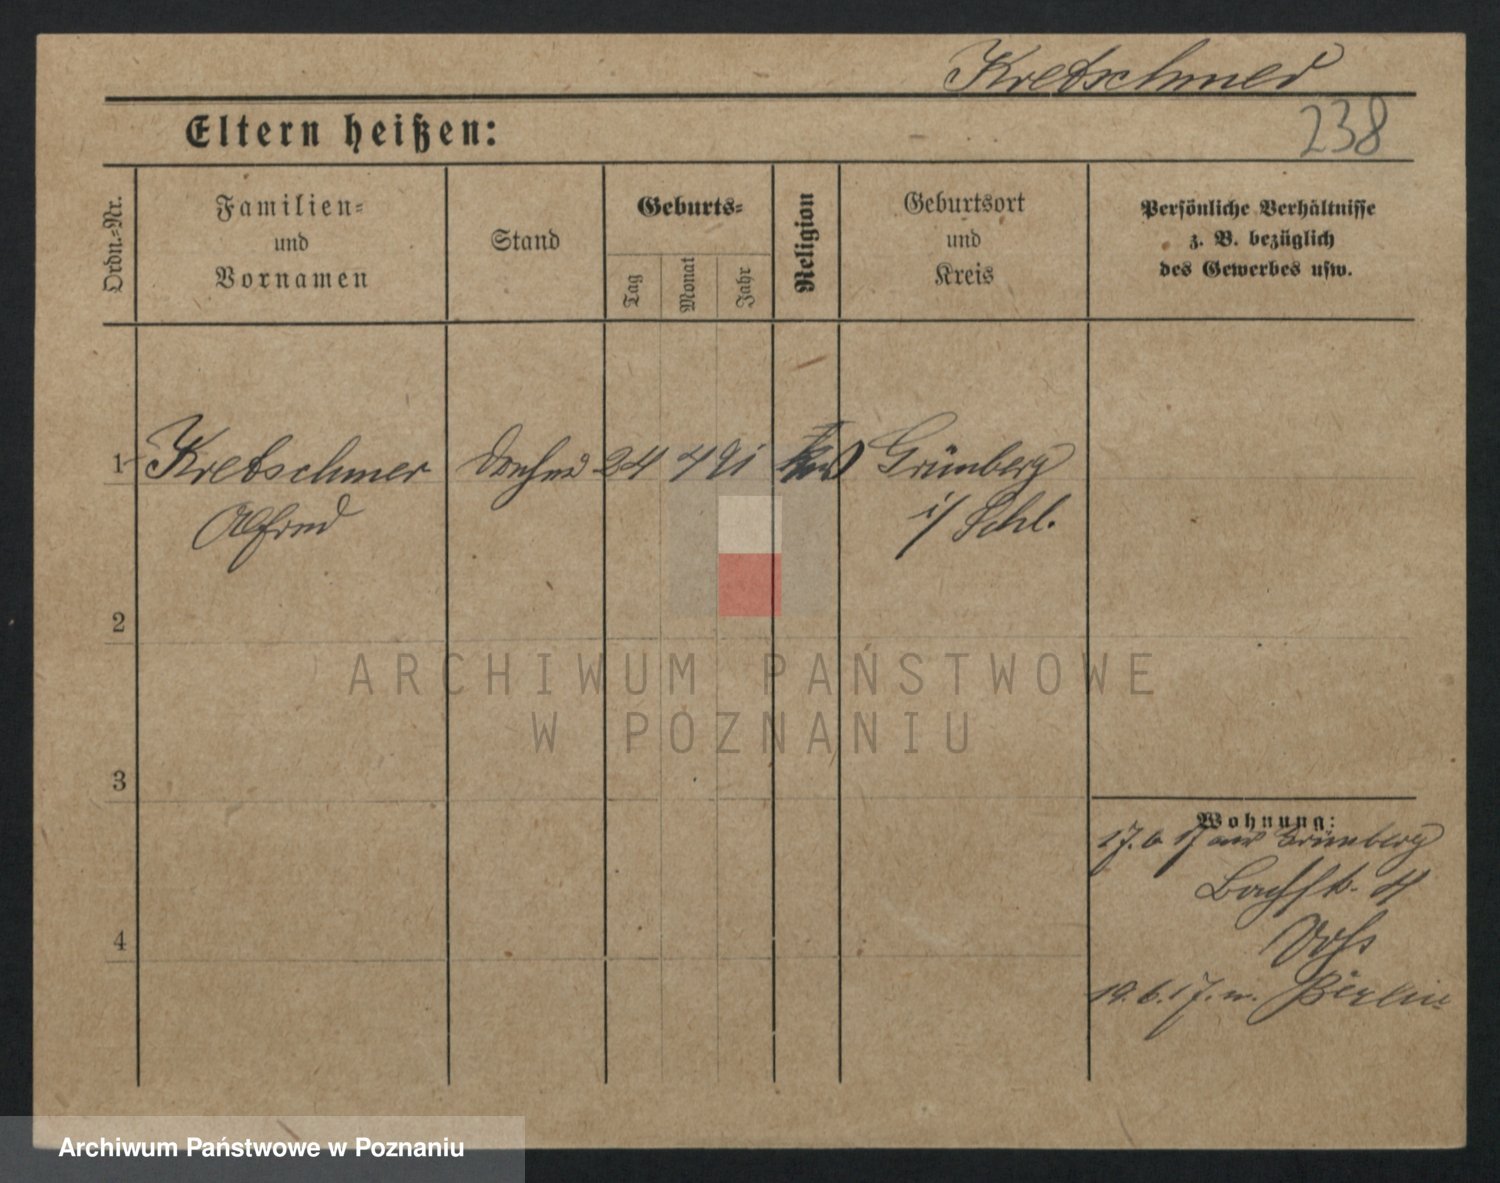 Kretschmer
238
Eltern heißen:
Ordn.-Nr.
Familien-
und
Vornamen
Stand
Geburts-
Tag
Monat
Jahr
Religion
Geburtsort
und
Kreis
Persönliche Verhältnisse
z. B. bezüglich
des Gewerbes usw.
1 Kretschmer 24 4 91 Grünberg
Alfred i/ Schl.
2
3
4
Wohnung:
17.6 17 aus Grünberg
Bachstr.
19.6.17. n. Berlin
ARCHIWUM PAŃSTWOWE
W POZNANIU
Archiwum Państwowe w Poznaniu